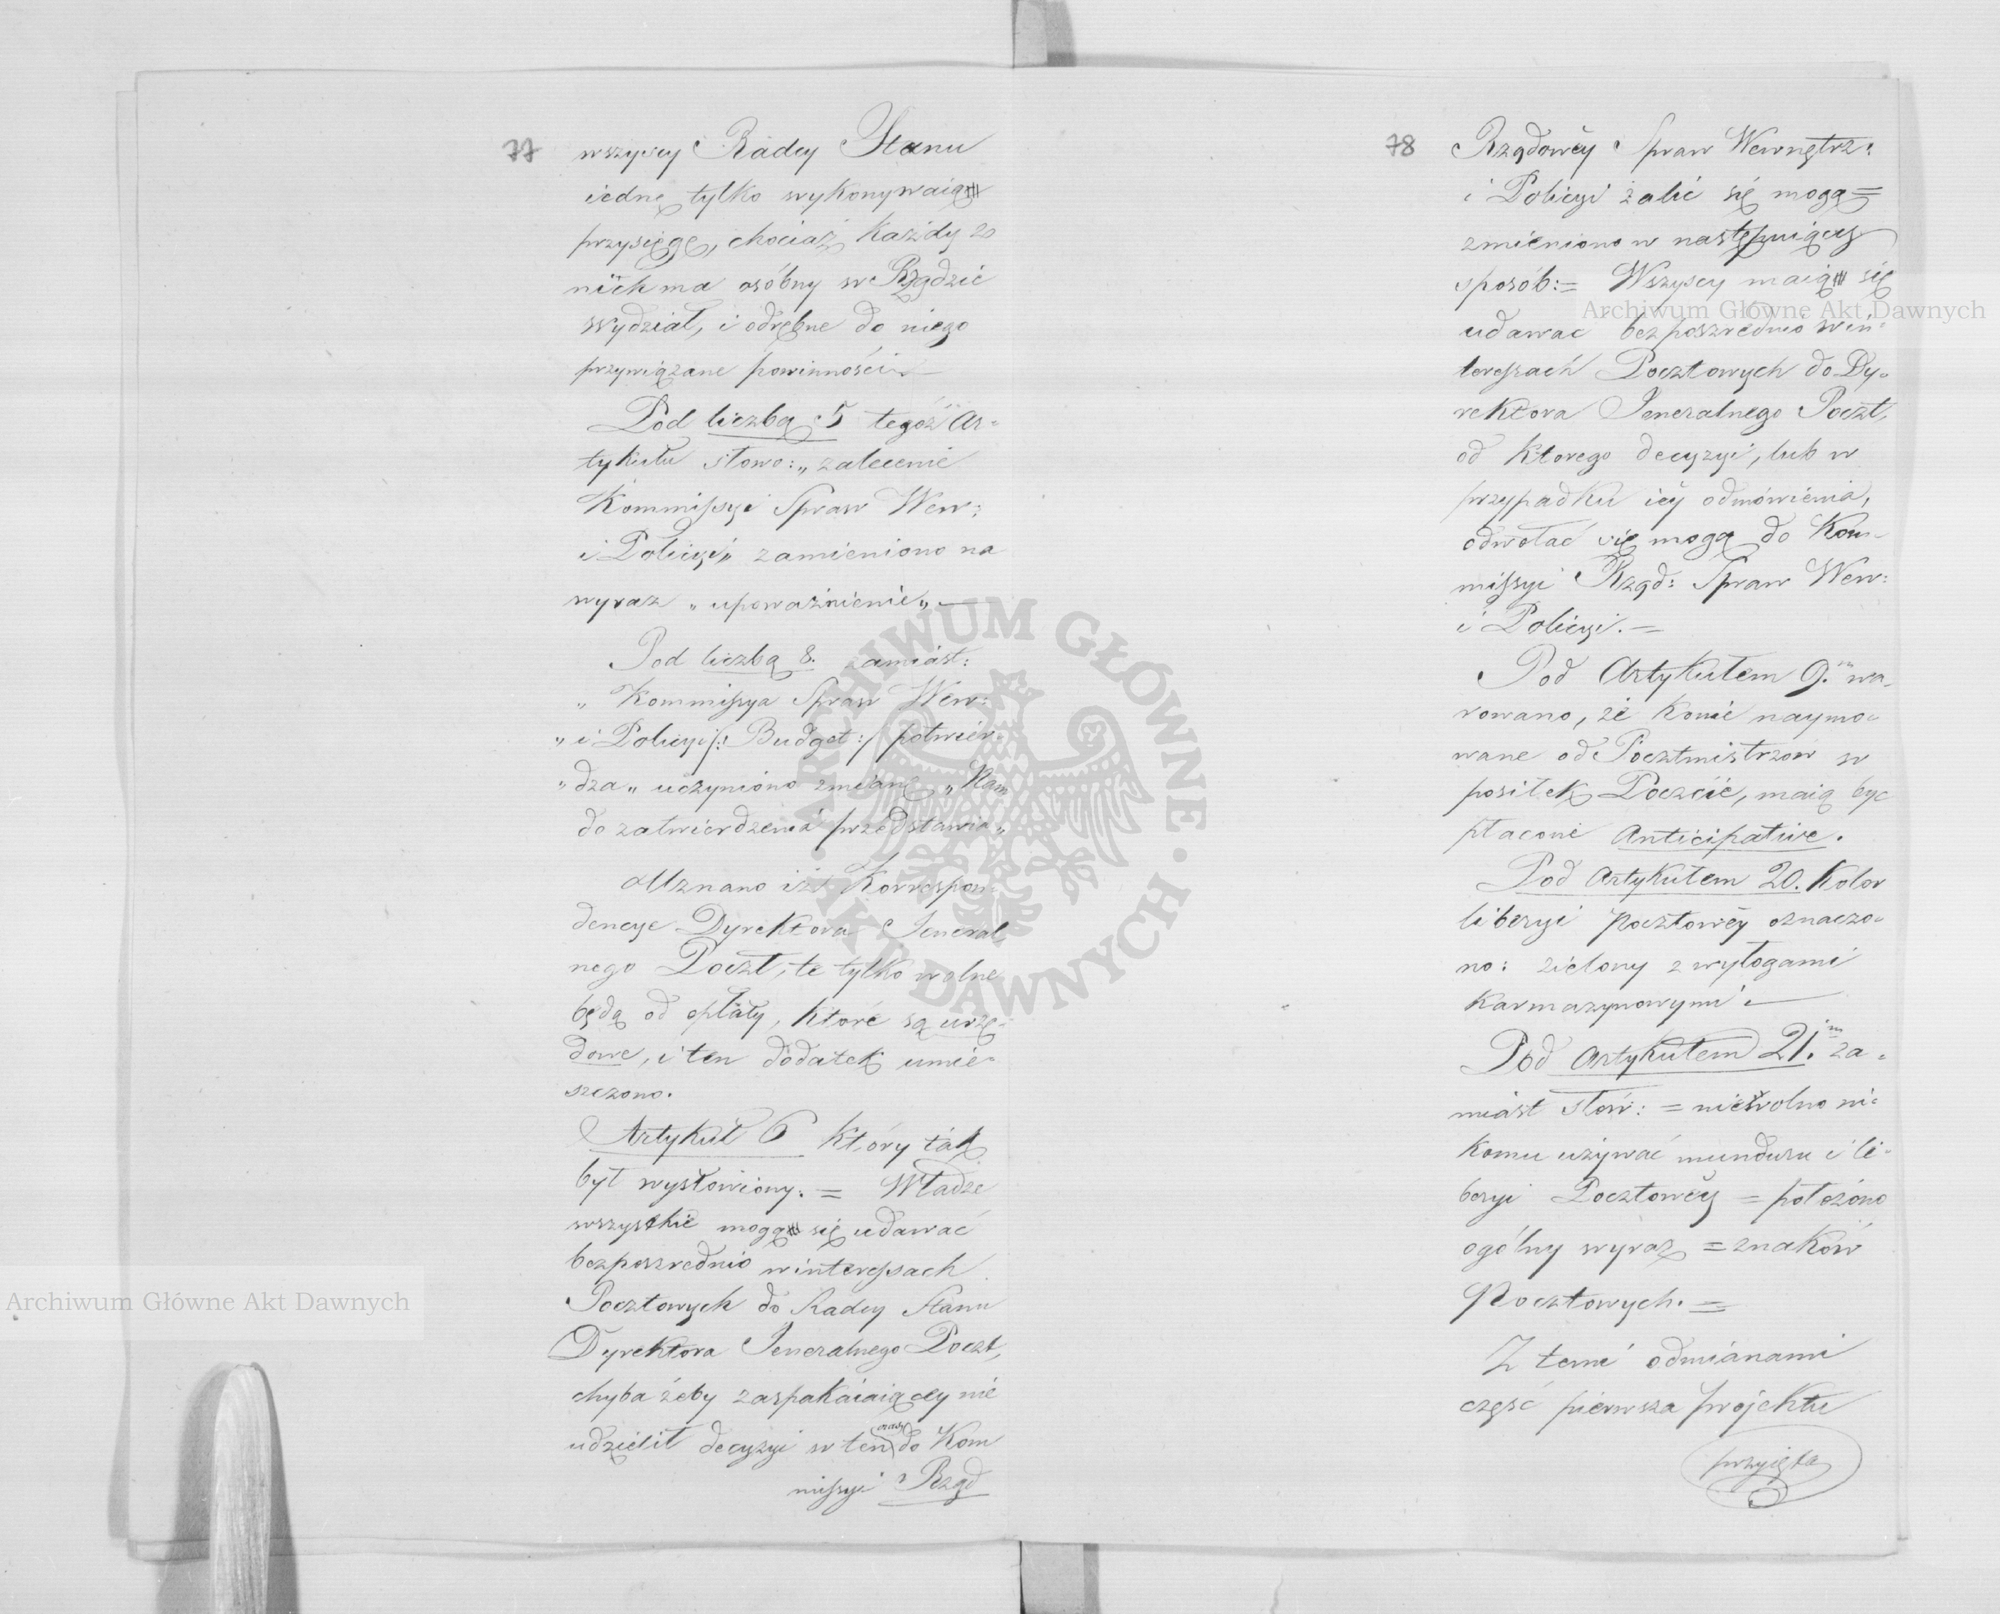 77
wszyscy Radcy Stanu
iednę tylko wykonywaią
przysięgę, chociaż każdy z
nich ma osóbny w Rządzie
wydział, i odrębne do niego
przywiązane powinności. —
Pod liczbą 5 tegoż Ar-
tykułu słowo: „ zalecenie
Kommissyi Spraw Wew:
i Policyi „ zamieniono na
wyraz „ upoważnienie „ —
Pod liczbą 8. zamiast:
„ Kommissya Spraw Wew:
„ i Policyi /: Budget :/ potwier-
„ dza „ uczyniono zmianę „ Nam
do zatwierdzenia przedstawia „
Uznano iż Korrespon-
dencye Dyrektora Jeneral-
nego Poczt, te tylko wolne
będą od opłaty, które są urzę-
dowe, i ten dodatek umie-
szczono.
Artykuł 6 który tak
był wysłowiony. = Władze
wszystkie mogą się udawać
bezposzrednio w interessach
Pocztowych do Radcy Stanu
Dyrektora Jeneralnego Poczt,
chyba żeby zaspakaiaiącey nie
udzielił decyzyi w ten czas do Kom
missyi Rząd
78
Rządowéy Spraw Wewnętrz:
i Policyi żalić się mogą =
zmieniono w następuiący
sposób: = Wszyscy maią się
udawac bezposzrednio w in-
teressach Pocztowych do Dy-
rektora Jeneralnego Poczt,
od ktorego decyzyi, lub w
przypadku iéy odmówienia,
odwołać się mogą do Kom-
missyi Rząd: Spraw Wew:
i Policyi. =
Pod Artykułem 9.m wa-
rowano, że konie naymo-
wane od Pocztmistrzow w
posiłek Poczcie, maią być
płacone Anticipative.
Pod Artykułem 20. kolor
liberyi pocztowéy oznaczo-
no: zielony z wyłogami
karmazynowymi. —
Pod Artykułem 21.m za-
miast słów: = nie wolno ni-
komu używać munduru i li-
beryi Pocztowéy = położono
ogólny wyraz = znaków
Pocztowych. =
Z temi odmianami
część pierwsza projektu
przyięta
Archiwum Główne Akt Dawnych
Archiwum Główne Akt Dawnych
ARCHIWUM GŁÓWNE · AKT DAWNYCH ·